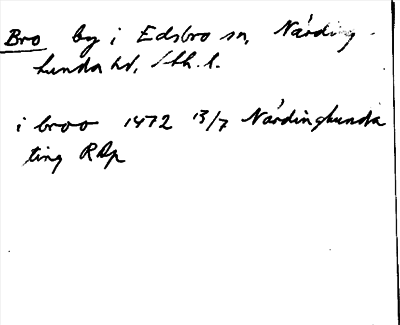 Bro by i Edsbro sn, Närding-
hunda hd, Sth. l.
i broo 1472 13/7 Närdinghunda
ting RAp